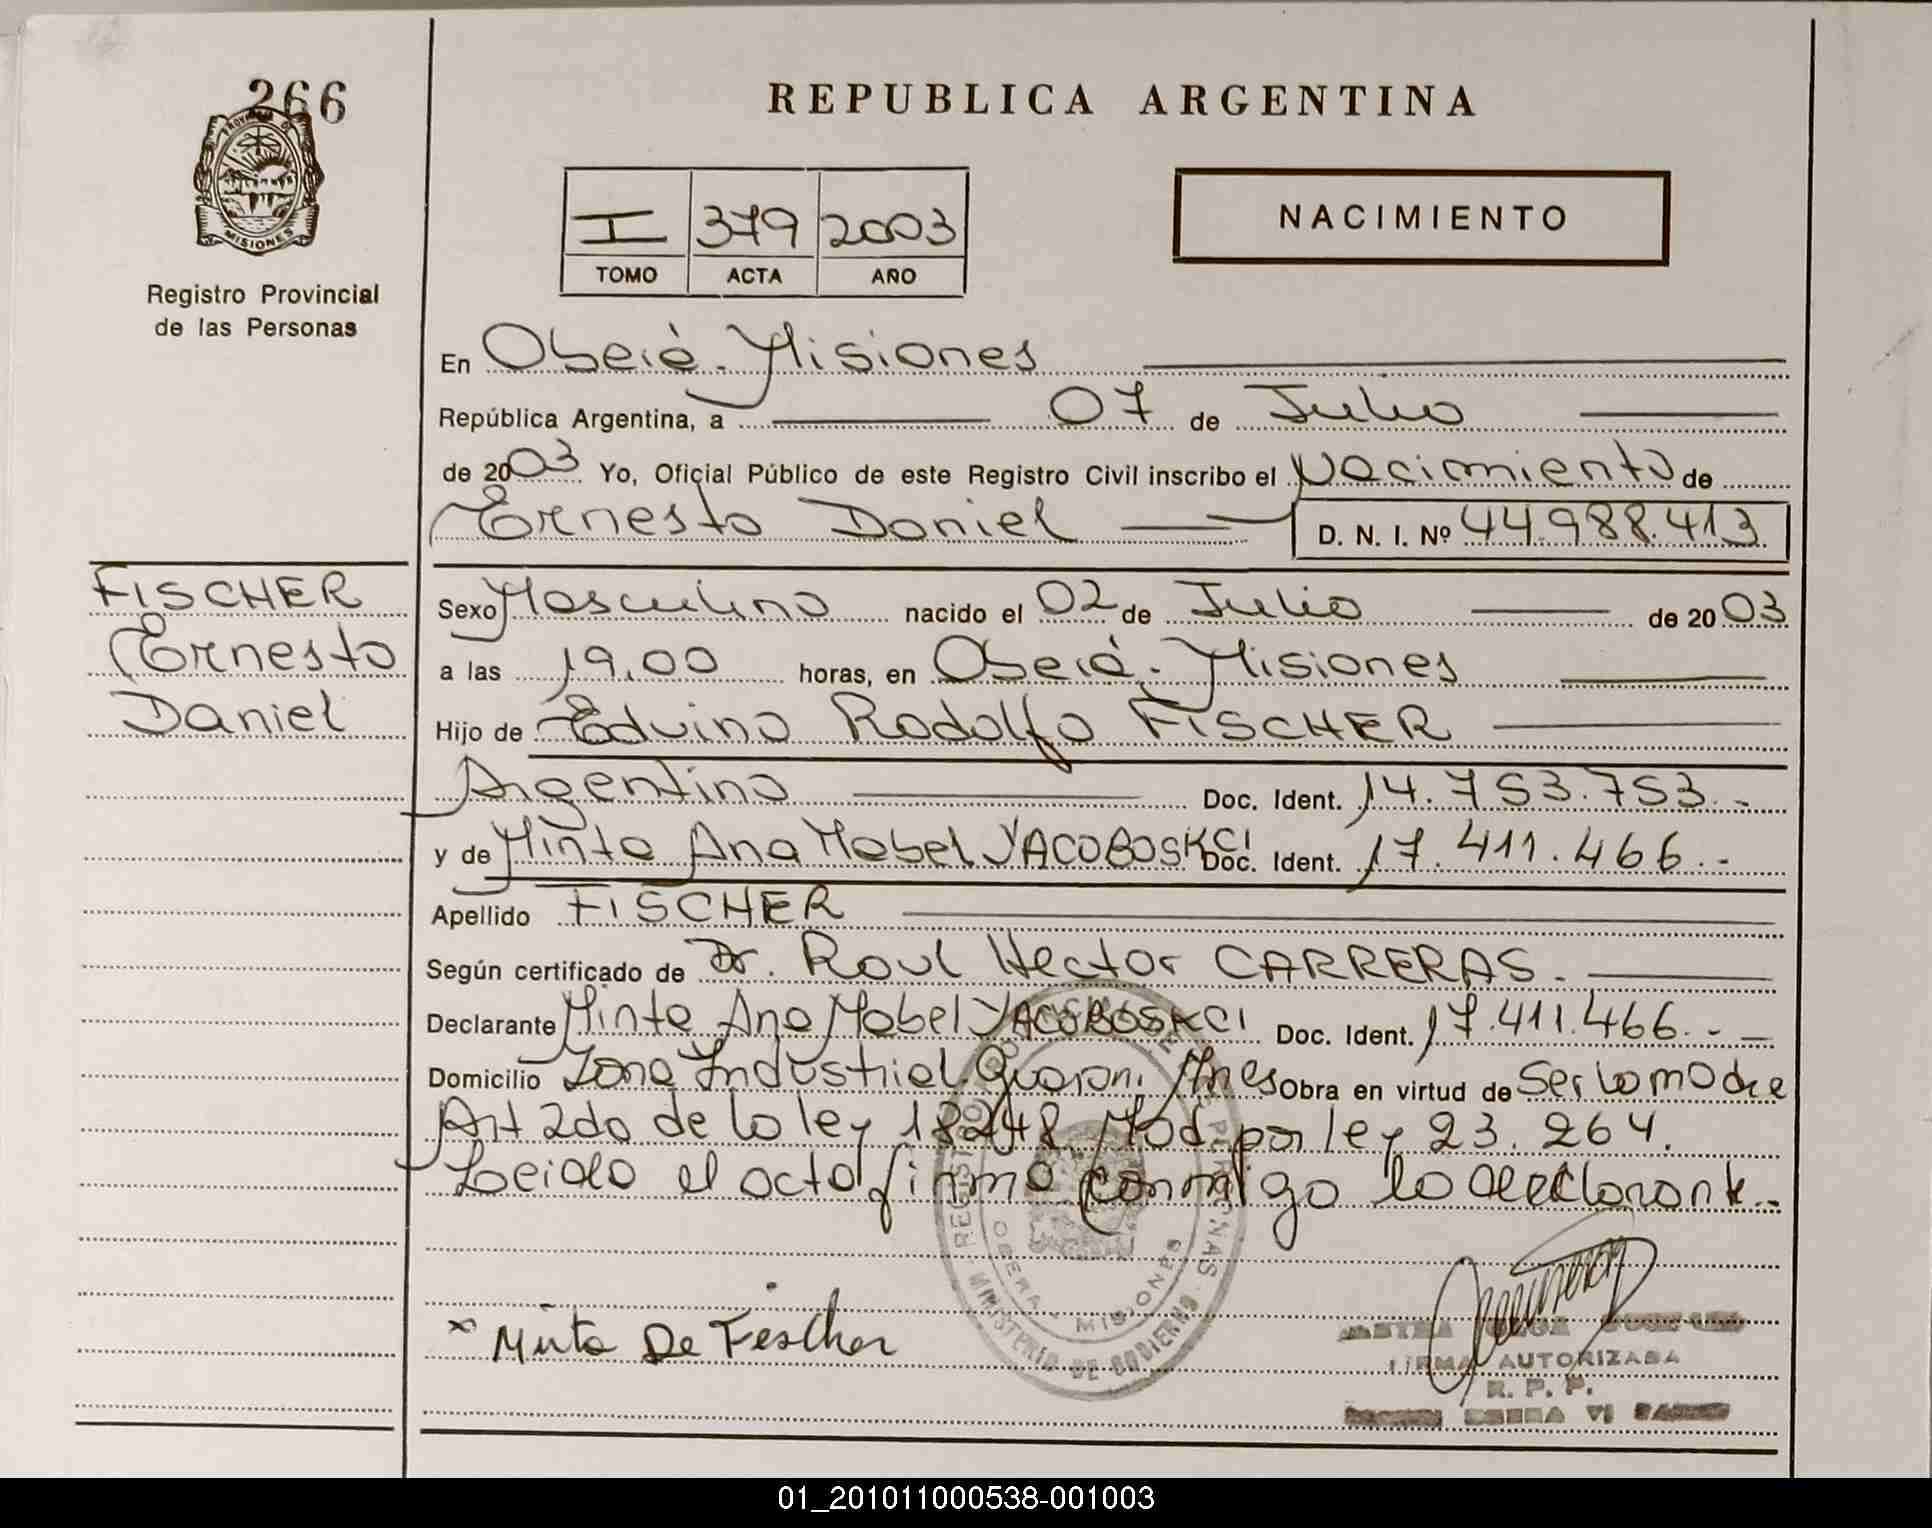 266
PROVINCIA DE
MISIONES
Registro Provincial
de las Personas
REPUBLICA ARGENTINA
I 379 2003
TOMO ACTA AÑO
NACIMIENTO
En Oberá - Misiones
República Argentina, a 07 de Julio
de 2003 Yo, Oficial Público de este Registro Civil inscribo el Nacimiento de
Ernesto Daniel D. N. I. Nº 44.988.413
FISCHER
Ernesto
Daniel
Sexo Masculino nacido el 02 de Julio de 2003
a las 19,00 horas, en Oberá - Misiones
Hijo de Eduino Rodolfo FISCHER
Argentino Doc. Ident. 14.753.753.-
y de Minta Ana Mabel YACOBOSKCI Doc. Ident. 17.411.466.-
Apellido FISCHER
Según certificado de Dr. Raul Hector CARRERAS.
Declarante Minta Ana Mabel YACOBOSKCI Doc. Ident. 17.411.466.-
Domicilio Zona Industrial. Guarani Mnes Obra en virtud de Ser la madre
Art 2do de la ley 18248 Mod. por ley 23.264.
Leida el acta firma conmigo la declarante.-
OBERA - MISIONES
MINISTERIO DE GOBIERNO
x Minta De Fischer
FIRMA AUTORIZADA
R. P. P.
01_201011000538-001003